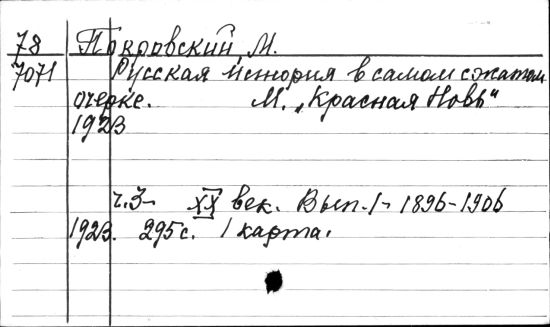 78 Покровский, М.
7071 Русская история в самом сжатом
очерке. М. „Красная Новь"
1923
ч.3- XX век. Вып.1- 1896-1906
1923. 295 с. 1 карта.